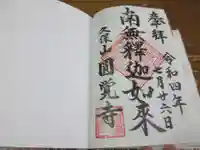 奉拝
令和四年七月廿六日
南無釋迦如來
久保山圓覺寺